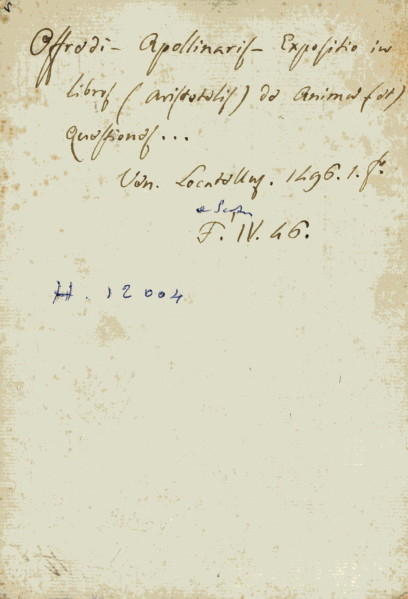 Offredi – Apollinaris – Expositio in
libros (Aristotelis) de Anima (et)
Questiones...
Ven. Locatellus. 1496. 1. fo.
F. IV. 46.
H. 12004